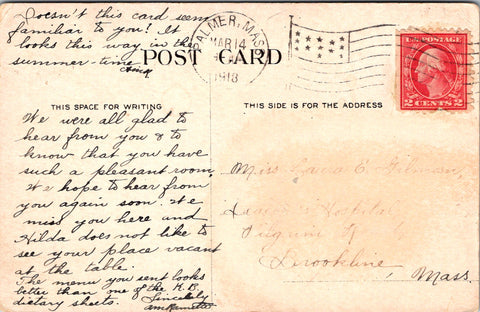 Doesn't this card seem
familiar to you? It
looks this way in the
summer-time
PALMER, MASS.
MAR 14
1918
POST CARD
U.S. POSTAGE
2 CENTS 2
THIS SPACE FOR WRITING
THIS SIDE IS FOR THE ADDRESS
We were all glad to
hear from you & to
know that you have
such a pleasant room
We hope to hear from
you again soon. We
miss you here and
Hilda does not like to
see your place vacant
at the table.
The menu you sent looks
better than one of the H.B.
dietary sheets. Sincerely
Miss E. Gilman
Hospital
Brookline
Mass.